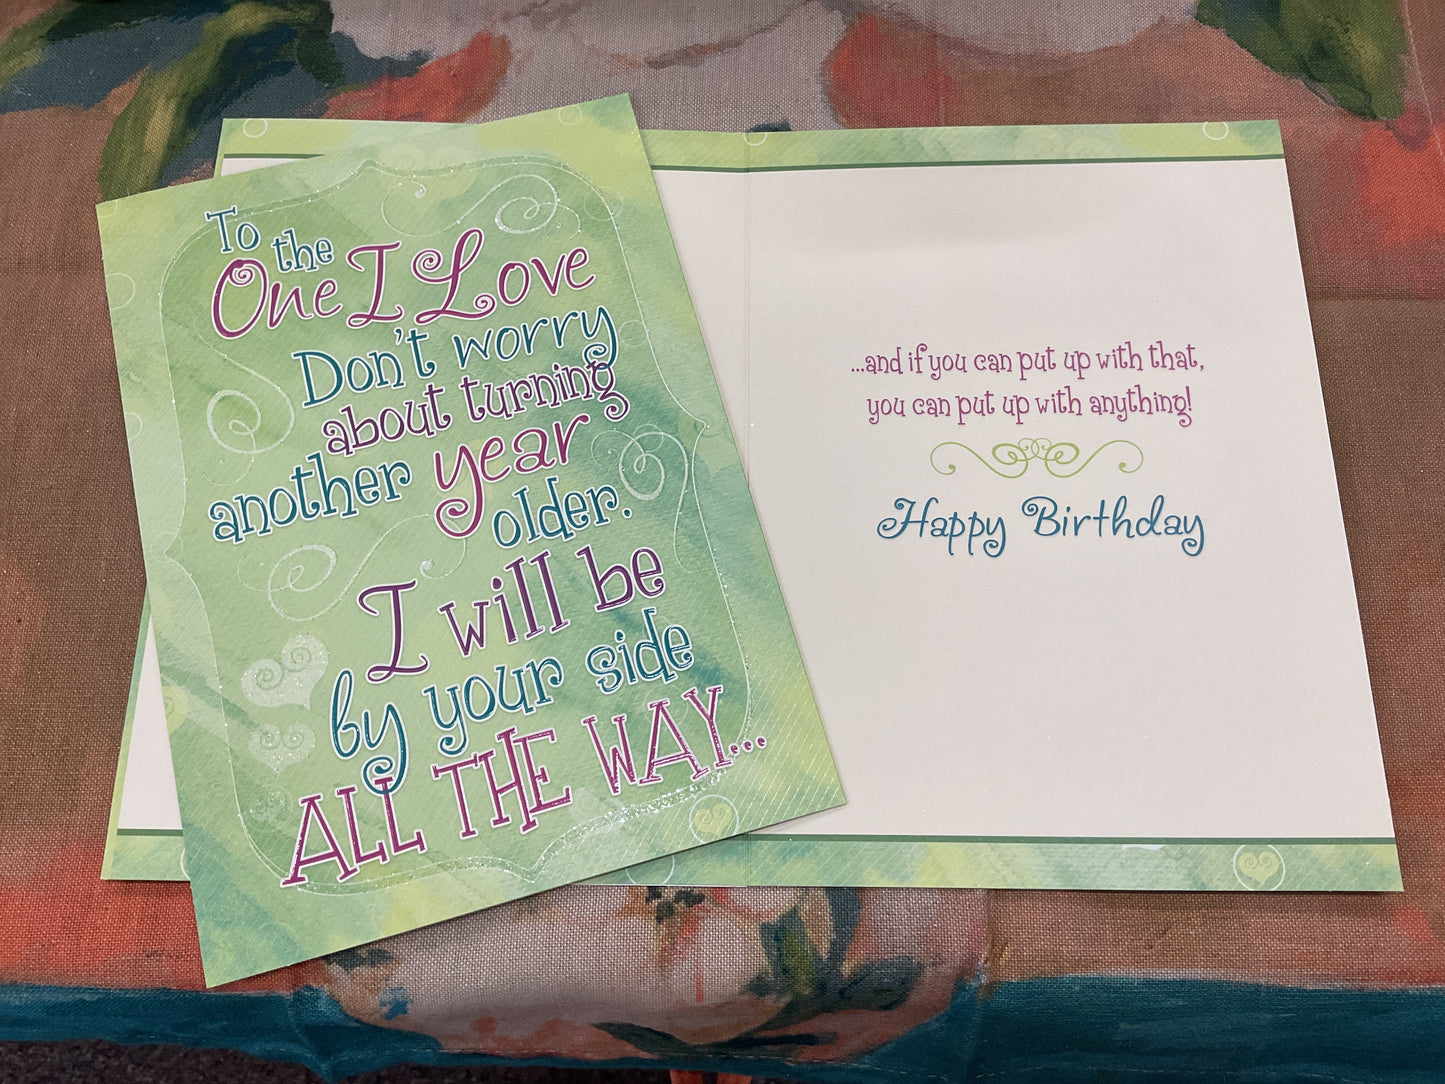 To the
One I Love
Don't worry
about turning
another year
older.
I will be
by your side
ALL THE WAY...
...and if you can put up with that,
you can put up with anything!
Happy Birthday